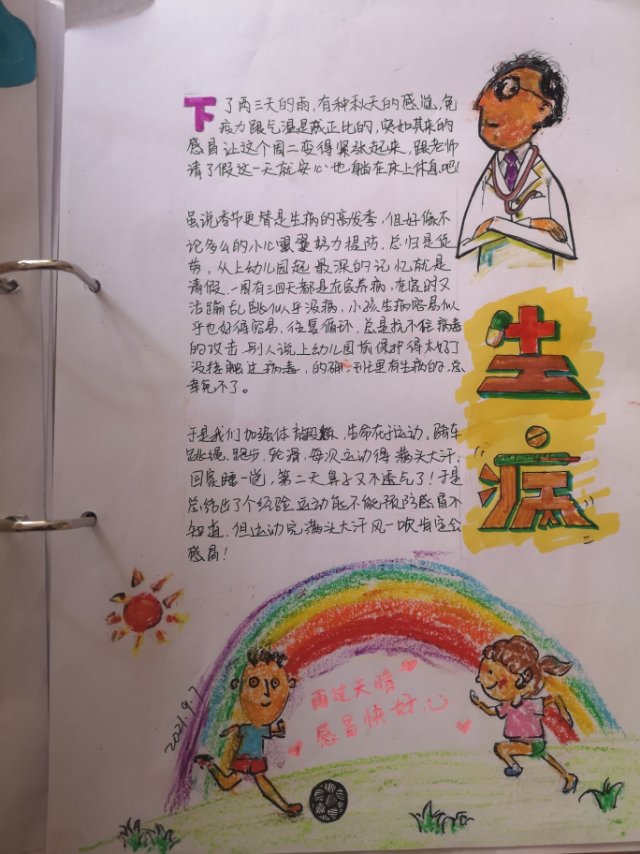 下了两三天的雨,有种秋天的感觉,免
疫力跟气温是成正比的,突如其来的
感冒让这个周二变得紧张起来,跟老师
请了假这一天就安心地躺在床上休息吧!
虽说春节更替是生病的高发季,但好像不
论多么的小心翼翼努力提防,总归是徒
劳,从上幼儿园起最深的记忆就是
请假.一周有三四天都是在家养病,在家时又
活蹦乱跳似乎没病,小孩生病容易似
乎也好得容易,往复循环,总是抗不住病毒
的攻击.别人说上幼儿园前保护得太好了
没接触过病毒,的确,班里有生病的,总
幸免不了。
于是我们加强体育锻炼,生命在于运动,骑车
跳绳、跑步,轮滑,每次运动得满头大汗,
回家睡一觉,第二天鼻子又不通气了!于是
总结出了个经验运动能不能预防感冒不
知道,但运动完满头大汗风一吹肯定会
感冒!
生
病
雨过天晴
感冒快好
2021.9.7